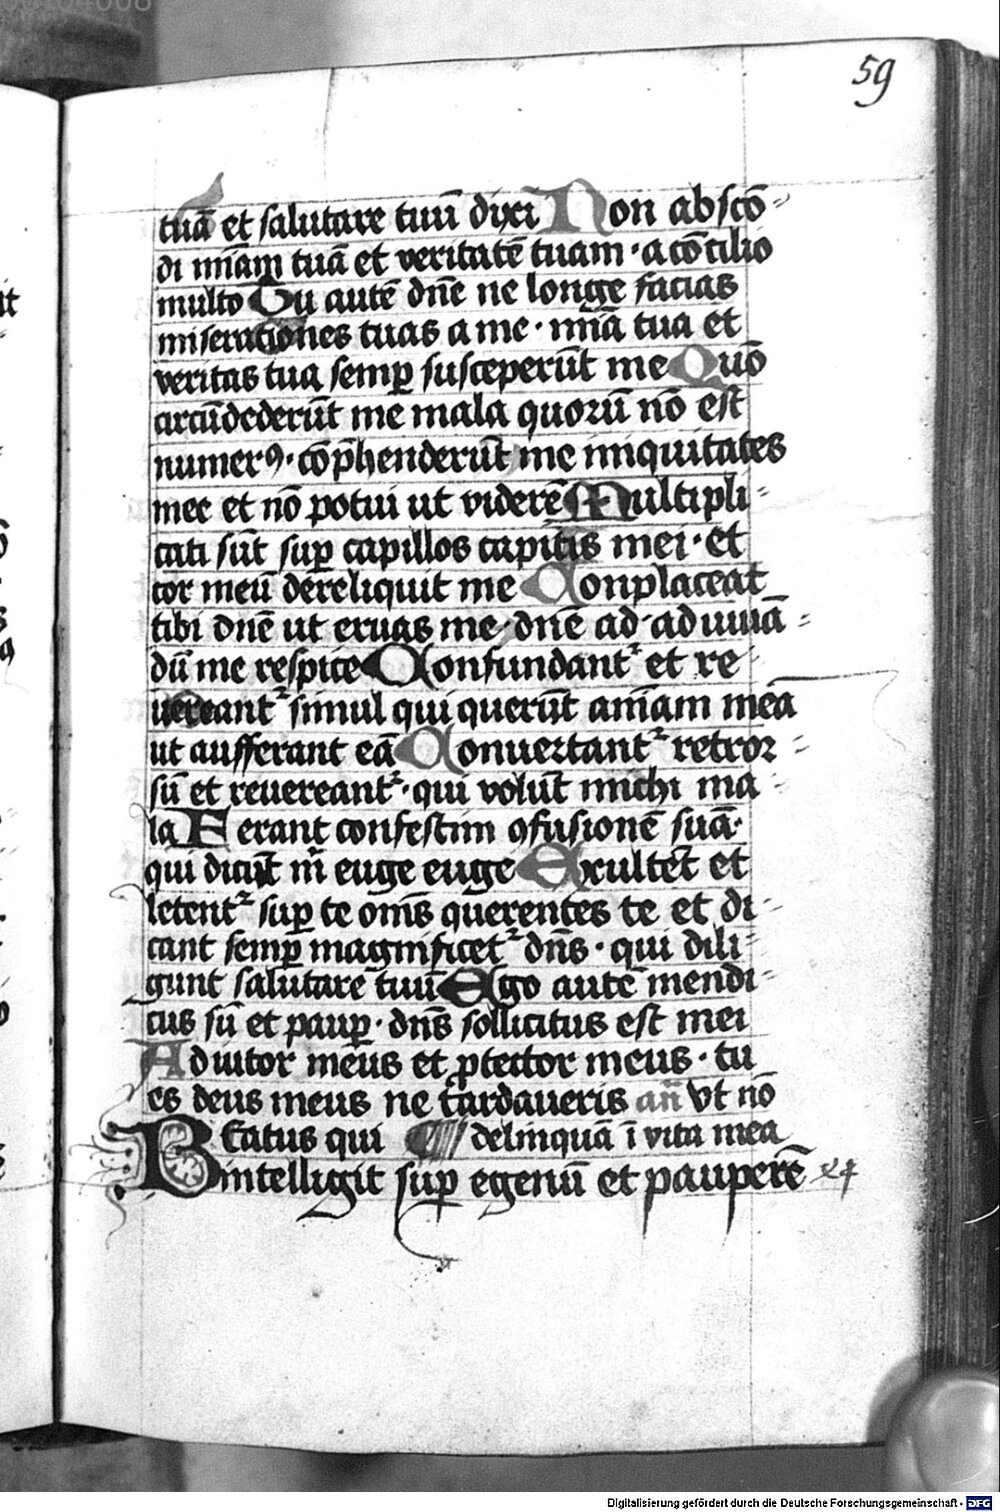 59
tuā et salutare tuū dixi Non abscō
di mīam tuā et veritatē tuam · a cōcilio
multo Tu autē dn̄e ne longe facias
miserationes tuas a me · mīa tua et
veritas tua semꝑ susceperūt me Quō
circūdederūt me mala quorū nō est
numerꝰ · cōp̄henderūt me iniquitates
mee et nō potui ut viderē Multipli
cati sūt suꝑ capillos capitis mei · et
cor meū dereliquit me Conplaceat
tibi dn̄e ut eruas me · dn̄e ad adiuuā
dū me respice Confundant᷑ et re
uereant᷑ simul qui querūt anīam meā
ut aufferant eā Conuertant᷑ retror
sū et reuereant᷑ · qui volūt michi ma
la Ferant confestim ꝯfusionē suā ·
qui dicūt m̄ euge euge Exultēt et
letent᷑ suꝑ te om̄s querentes te et di
cant semꝑ magnificet᷑ dn̄s · qui dili
gunt salutare tuū Ego autē mendi
cus sū et pauꝑ · dn̄s sollicitus est mei
Adiutor meus et ꝓtector meus · tu
es deus meus ne tardaueris an̄ Vt nō
Beatus qui delinquā ī vita mea
intelligit suꝑ egenū et pauperē
Digitalisierung gefördert durch die Deutsche Forschungsgemeinschaft - DFG